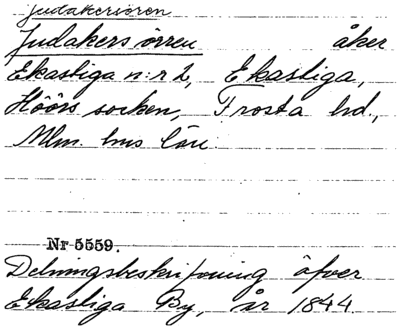 Judakersörren
Judakersörren åker
Ekastiga n:r 2, Ekastiga,
Höörs socken, Frosta hd.,
Mlm. hus län
Nr 5559.
Delningsbeskrifvning öfver
Ekastiga By, år 1844.